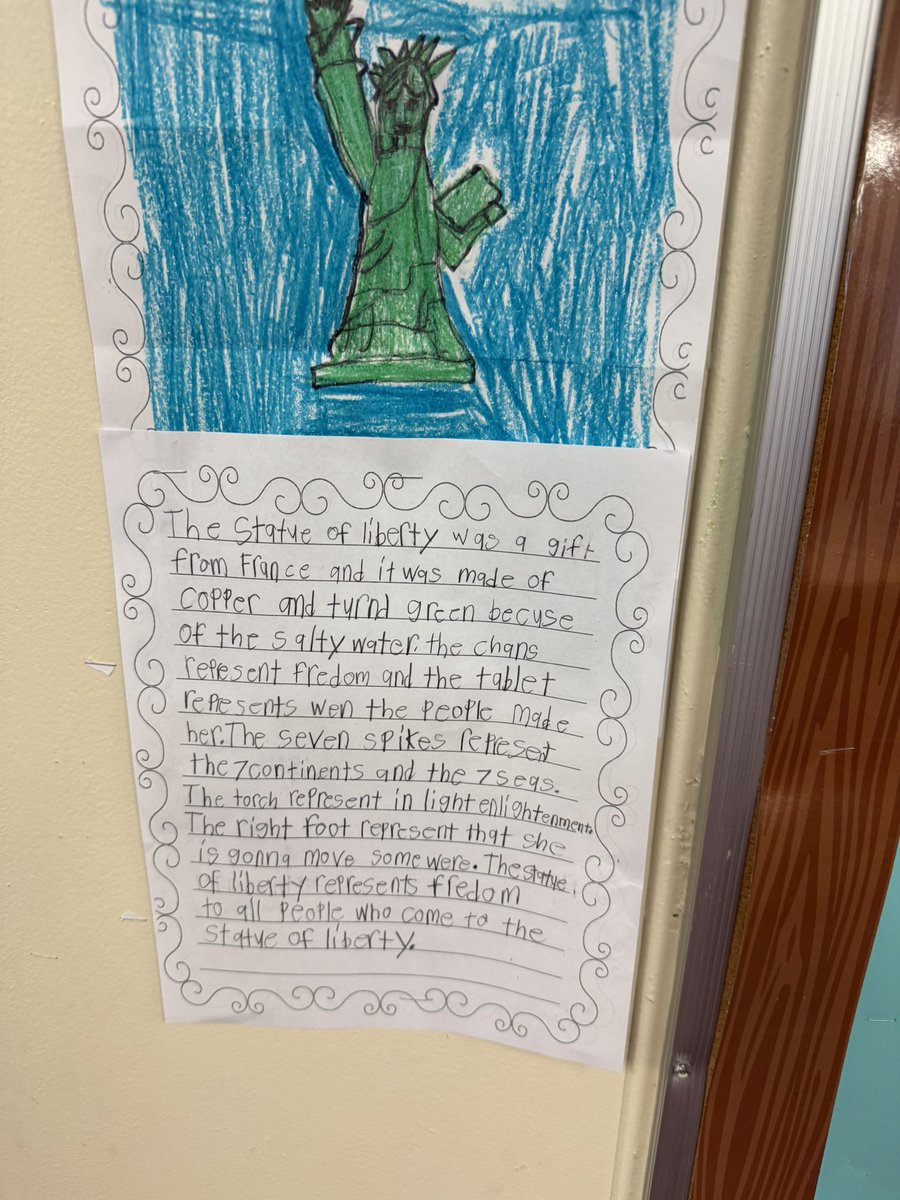 The Statue of liberty was a gift
from France and it was made of
copper and turnd green becuse
of the salty water. the chans
represent fredom and the tablet
represents wen the people made
her. The seven spikes represent
the 7 continents and the 7 seas.
The torch represent in light enlightenment.
The right foot represent that she
is gonna move some were. The statue
of liberty represents fredom
to all people who come to the
statue of liberty.